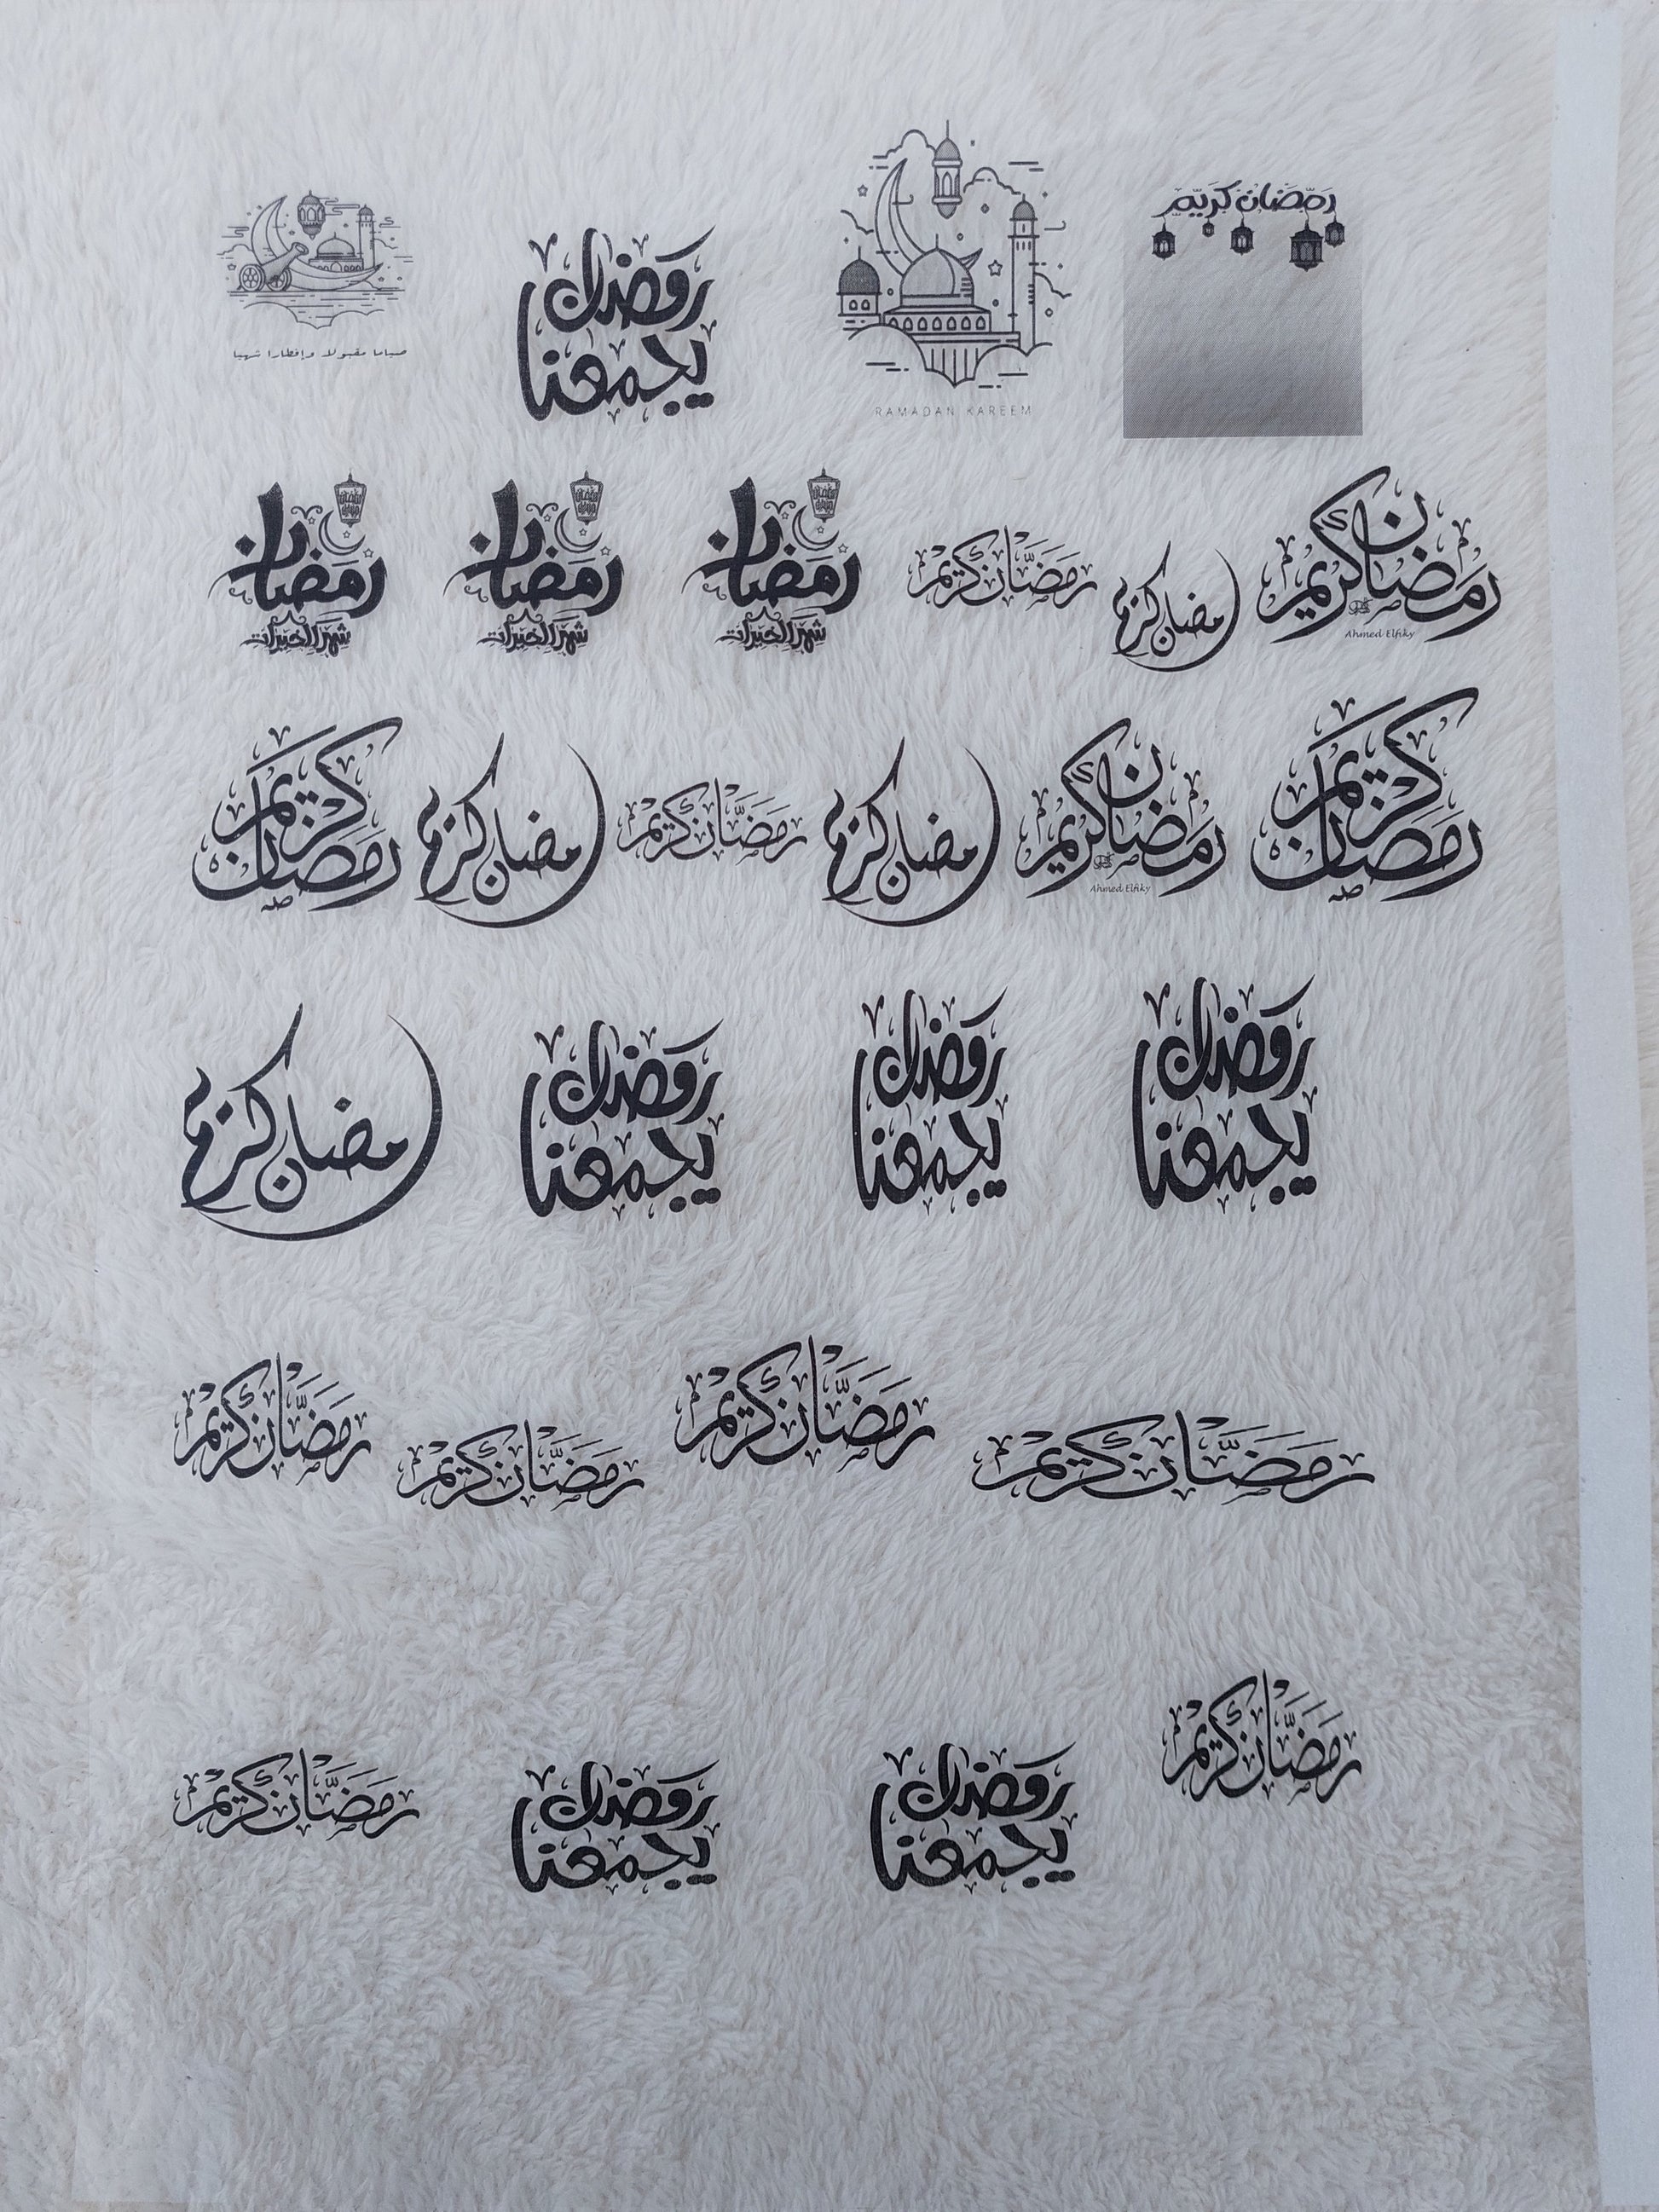 رمضان كريم
RAMADAN KAREEM
رمضان
يجمعنا
صياما مقبولا وإفطارا شهيا
رمضان كريم
Ahmed Elfiky
رمضان كريم
رمضان كريم
رمضان
شهر الخيرات
رمضان
شهر الخيرات
رمضان
شهر الخيرات
رمضان كريم
رمضان كريم
Ahmed Elfiky
رمضان كريم
رمضان كريم
رمضان كريم
رمضان كريم
رمضان
يجمعنا
رمضان
يجمعنا
رمضان
يجمعنا
رمضان كريم
رمضان كريم
رمضان كريم
رمضان كريم
رمضان كريم
رمضان كريم
رمضان
يجمعنا
رمضان
يجمعنا
رمضان كريم